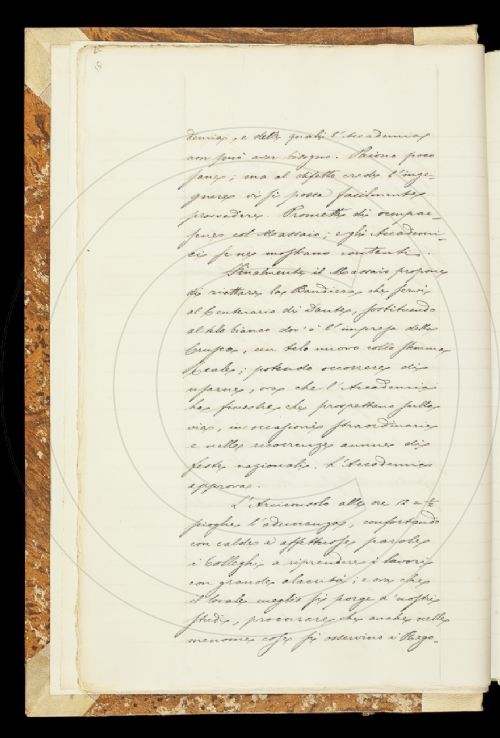 demia, e delle quali l'Accademia
non può aver bisogno. Paiono poco
sane; ma al difetto crede l'inge-
gnere vi si possa facilmente
provvedere. Promette di occupar-
sene col Massaio; e gli Accademi-
ci se ne mostrano contenti.
Finalmente il Massaio propone
di riattare la Bandiera che servì
al Centenario di Dante, sostituendo
al telo bianco dov'è l'impresa della
Crusca, un telo nuovo collo stemma
Reale; potendo occorrere di
usarne, ora che l'Accademia
ha finestre che prospettano sulla
via, in occasioni straordinarie
e nelle ricorrenze annue di
feste nazionali. L'Accademia
approva.
L'Arciconsolo alle ore 12 e ½
scioglie l'adunanza, confortando
con calde e affettuose parole
i Colleghi a riprendere i lavori
con grande alacrità; e ora che
il locale meglio si porge a' nostri
studi, procurare che anche nelle
menome cose si osservino i Rego-